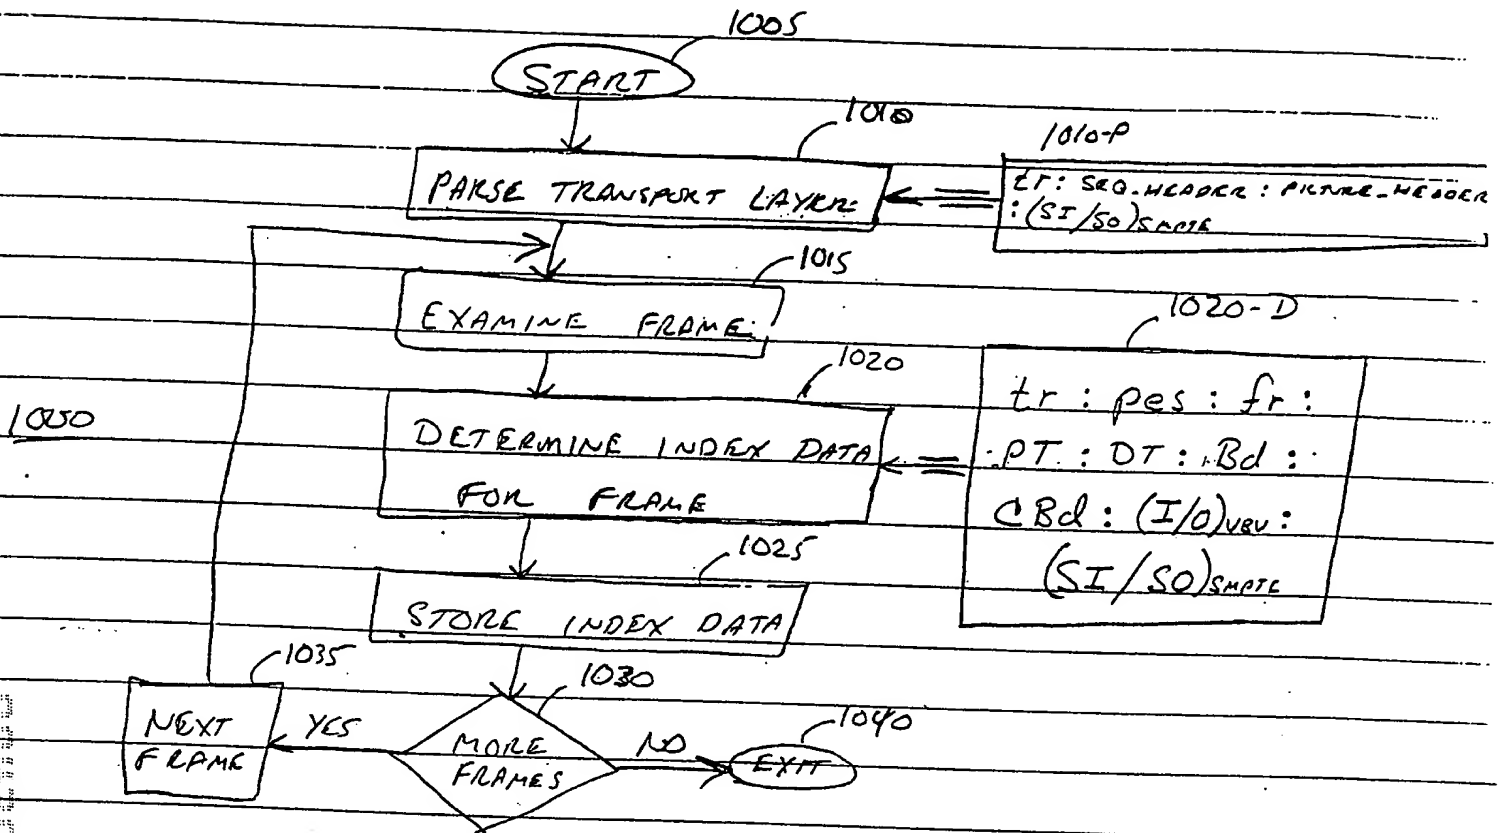 1005
START
1010
1010-P
PARSE TRANSPORT LAYER
tr: SEQ-HEADER: PICTURE_HEADER
:(SI/SO)SMPTE
1015
EXAMINE FRAME
1020-D
1020
tr : pes : fr :
1000
DETERMINE INDEX DATA
FOR FRAME
:PT : DT : Bd :
CBd : (I/O)VBV :
(SI/SO)SMPTE
1025
STORE INDEX DATA
1035
1030
NEXT
FRAME
YES
MORE
FRAMES
NO
1040
EXIT